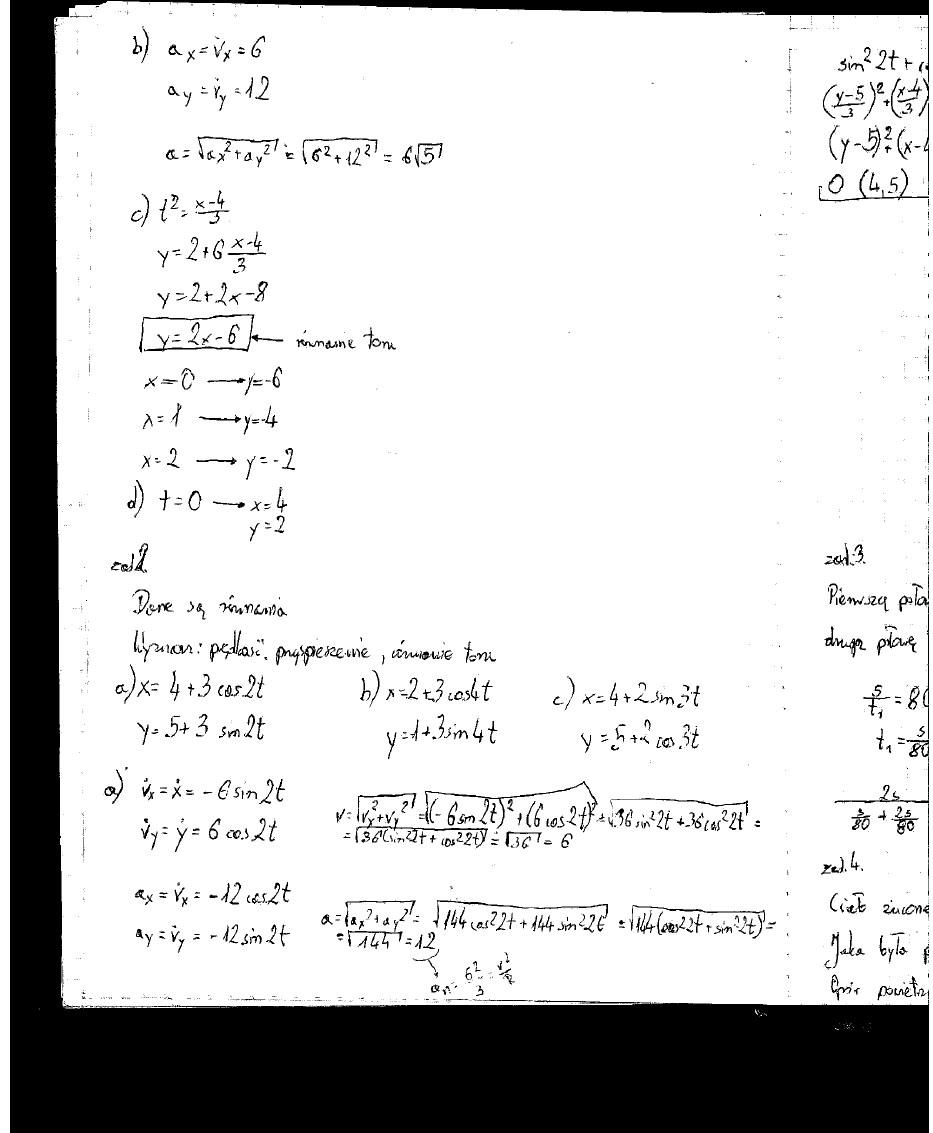 b) aₓ = v̇ₓ = 6
a_y = v̇_y = 12
a = √(aₓ² + a_y²) = √(6² + 12²) = 6√5
c) t² = (x-4)/3
y = 2 + 6 (x-4)/3
y = 2 + 2x - 8
y = 2x - 6 ← równanie toru
x = 0 → y = -6
x = 1 → y = -4
x = 2 → y = -2
d) t = 0 → x = 4
y = 2
zad 2.
Dane są równania
Wyznacz: prędkość, przyspieszenie, równanie toru
a) x = 4 + 3 cos 2t b) x = 2 + 3 cos 4t c) x = 4 + 2 sin 3t
y = 5 + 3 sin 2t y = 1 + 3 sin 4t y = 5 + 2 cos 3t
a) vₓ = ẋ = -6 sin 2t v = √(vₓ² + v_y²) = √((-6 sin 2t)² + (6 cos 2t)²) = √(36 sin² 2t + 36 cos² 2t) =
v_y = ẏ = 6 cos 2t = √(36 (sin² 2t + cos² 2t)) = √36 = 6
aₓ = v̇ₓ = -12 cos 2t a = √(aₓ² + a_y²) = √(144 cos² 2t + 144 sin² 2t) = √(144 (cos² 2t + sin² 2t)) =
a_y = v̇_y = -12 sin 2t = √144 = 12
aₙ = 6²/3 = v²/R
sin² 2t +
((y-5)/3)² + ((x-4)/3)
(y-5)² + (x-4
O (4,5)
zad. 3.
Pierwszą poło
drugą połowę
s/t₁ = 80
t₁ = s/80
2s
s/80 + 2s/80
zad. 4.
Jaka była p
Opór powietrz